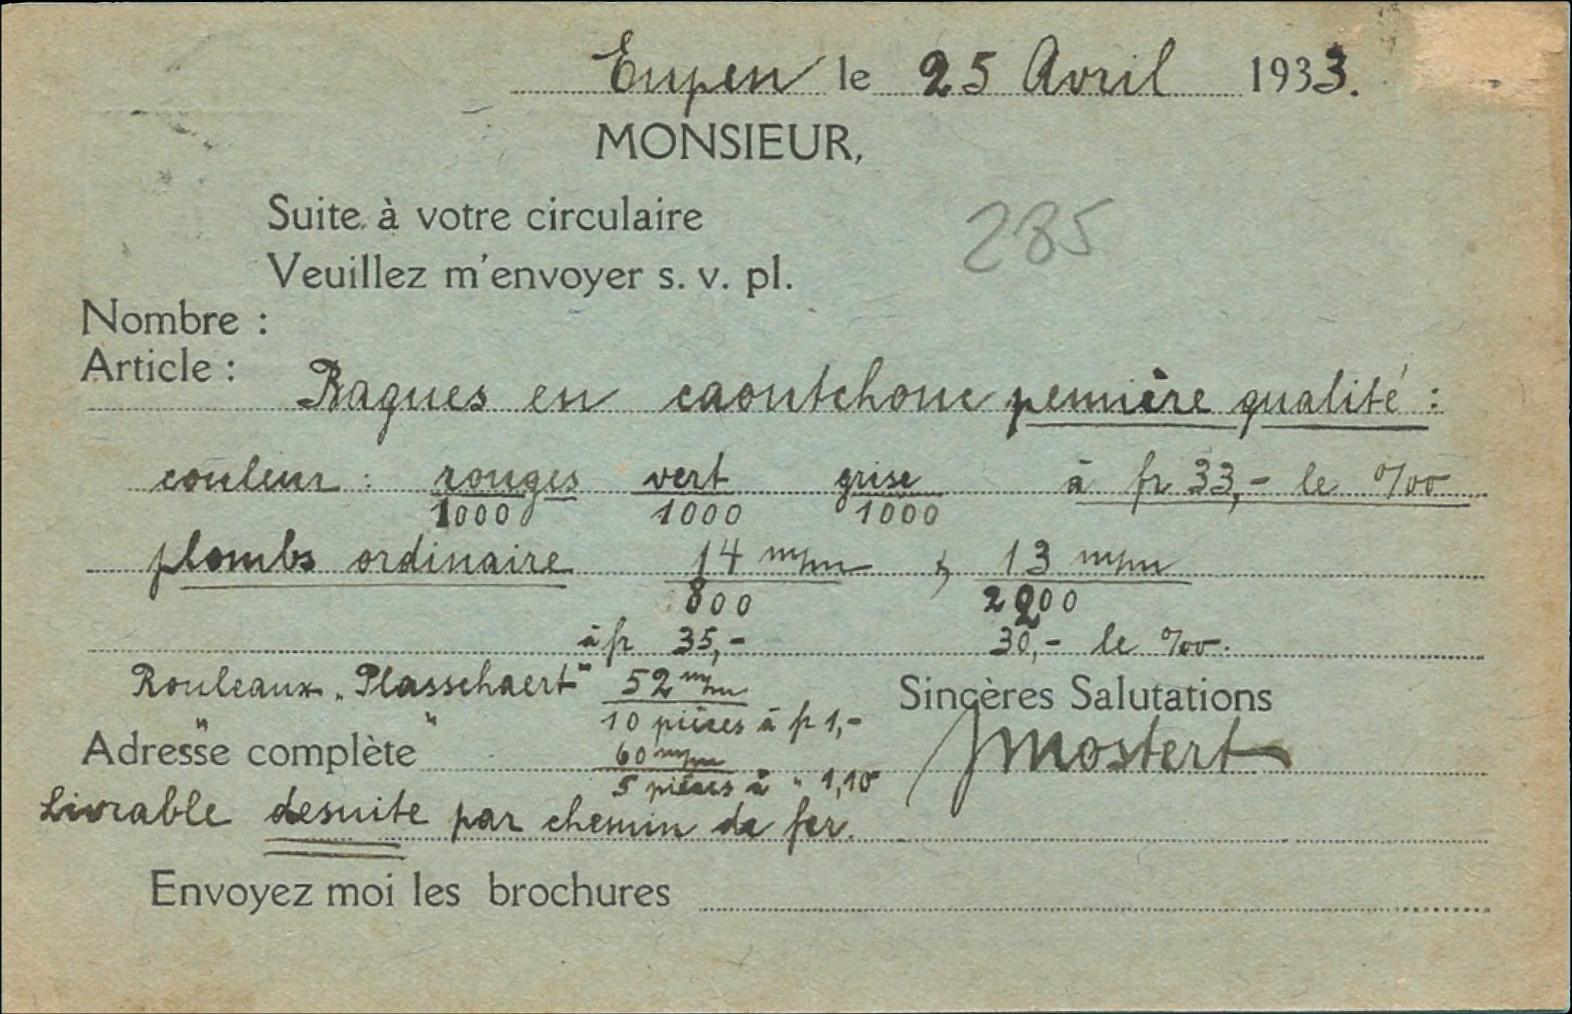 Eupen le 25 Avril 1933.
MONSIEUR,
Suite à votre circulaire
285
Veuillez m'envoyer s. v. pl.
Nombre :
Article : Bagues en caoutchouc pemière qualité :
couleur : rouges vert grise à fr 33,- le %00
1000 1000 1000
plombs ordinaire 14 m/m & 13 m/m
800 2000
à fr 35,- 30,- le %00.
Rouleaux „Plasschaert" 52 m/m
Sincères Salutations
10 pièces à fr 1,-
" " 60 m/m
JMostert
Adresse complète
5 pièces à " 1,10
Livrable desuite par chemin de fer.
Envoyez moi les brochures